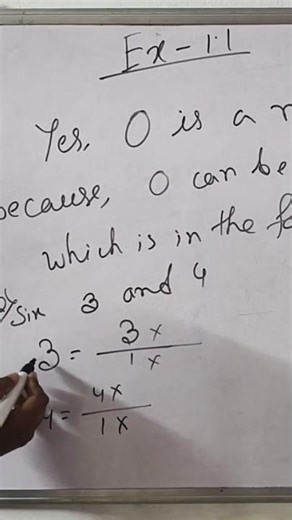 Ex-1.1
Yes, 0 is a
because, 0 can be
which is in the
Six 3 and 4
3 = 3x/1x
4 = 4x/1x